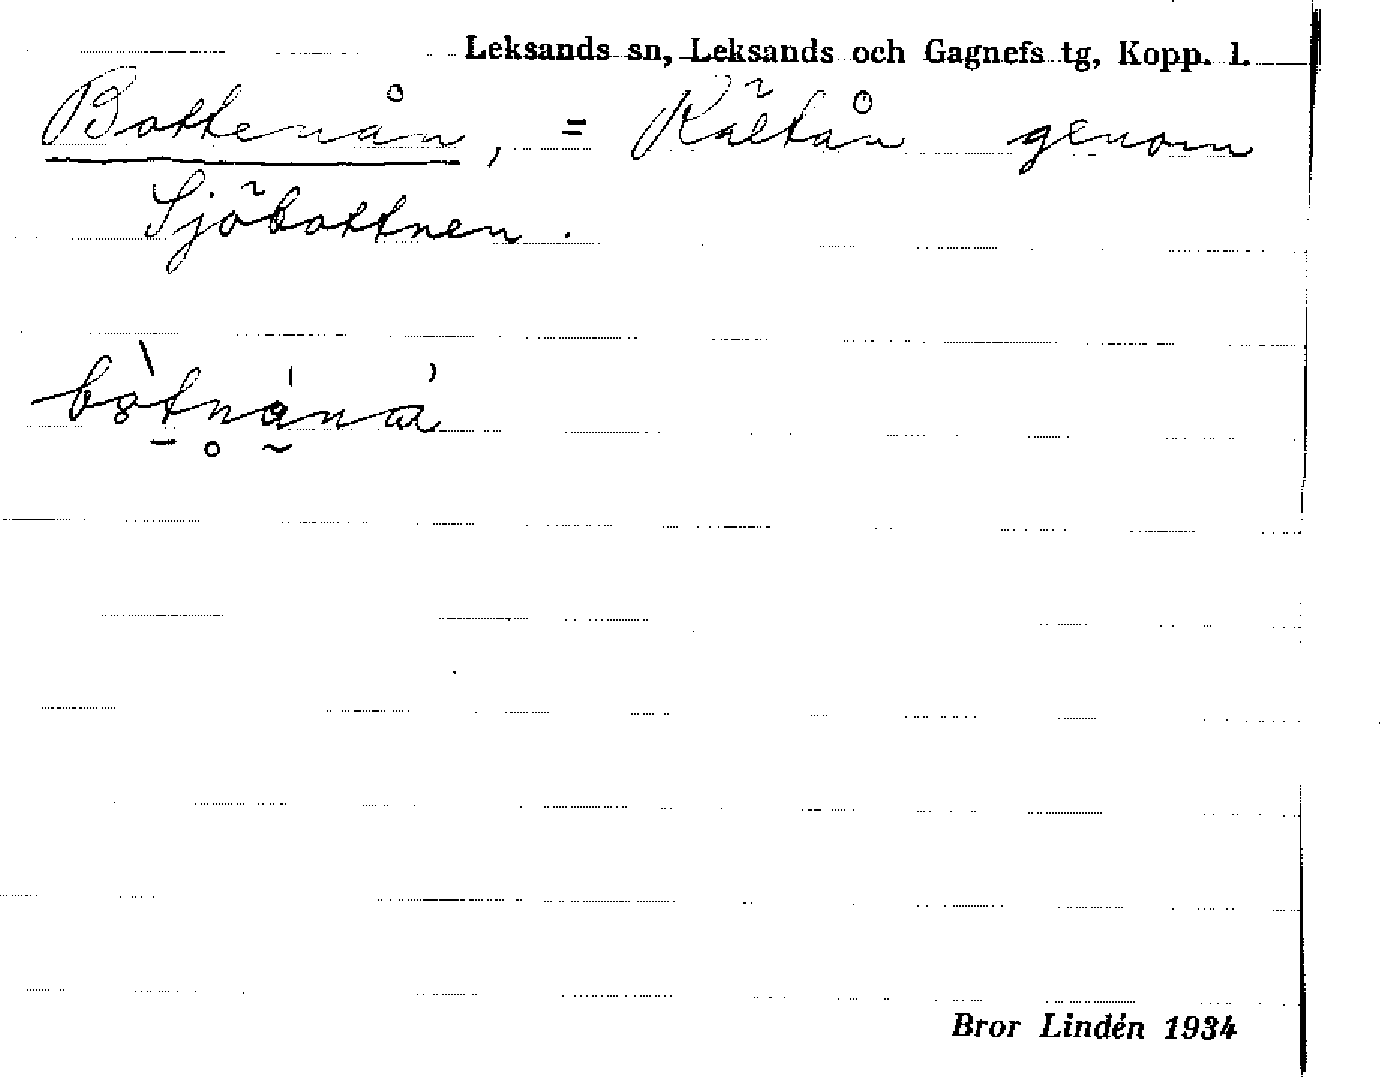 Leksands sn, Leksands och Gagnefs tg, Kopp. l.
Bottenån, = Kältån genom
Sjöbottnen.
Bror Lindén 1934